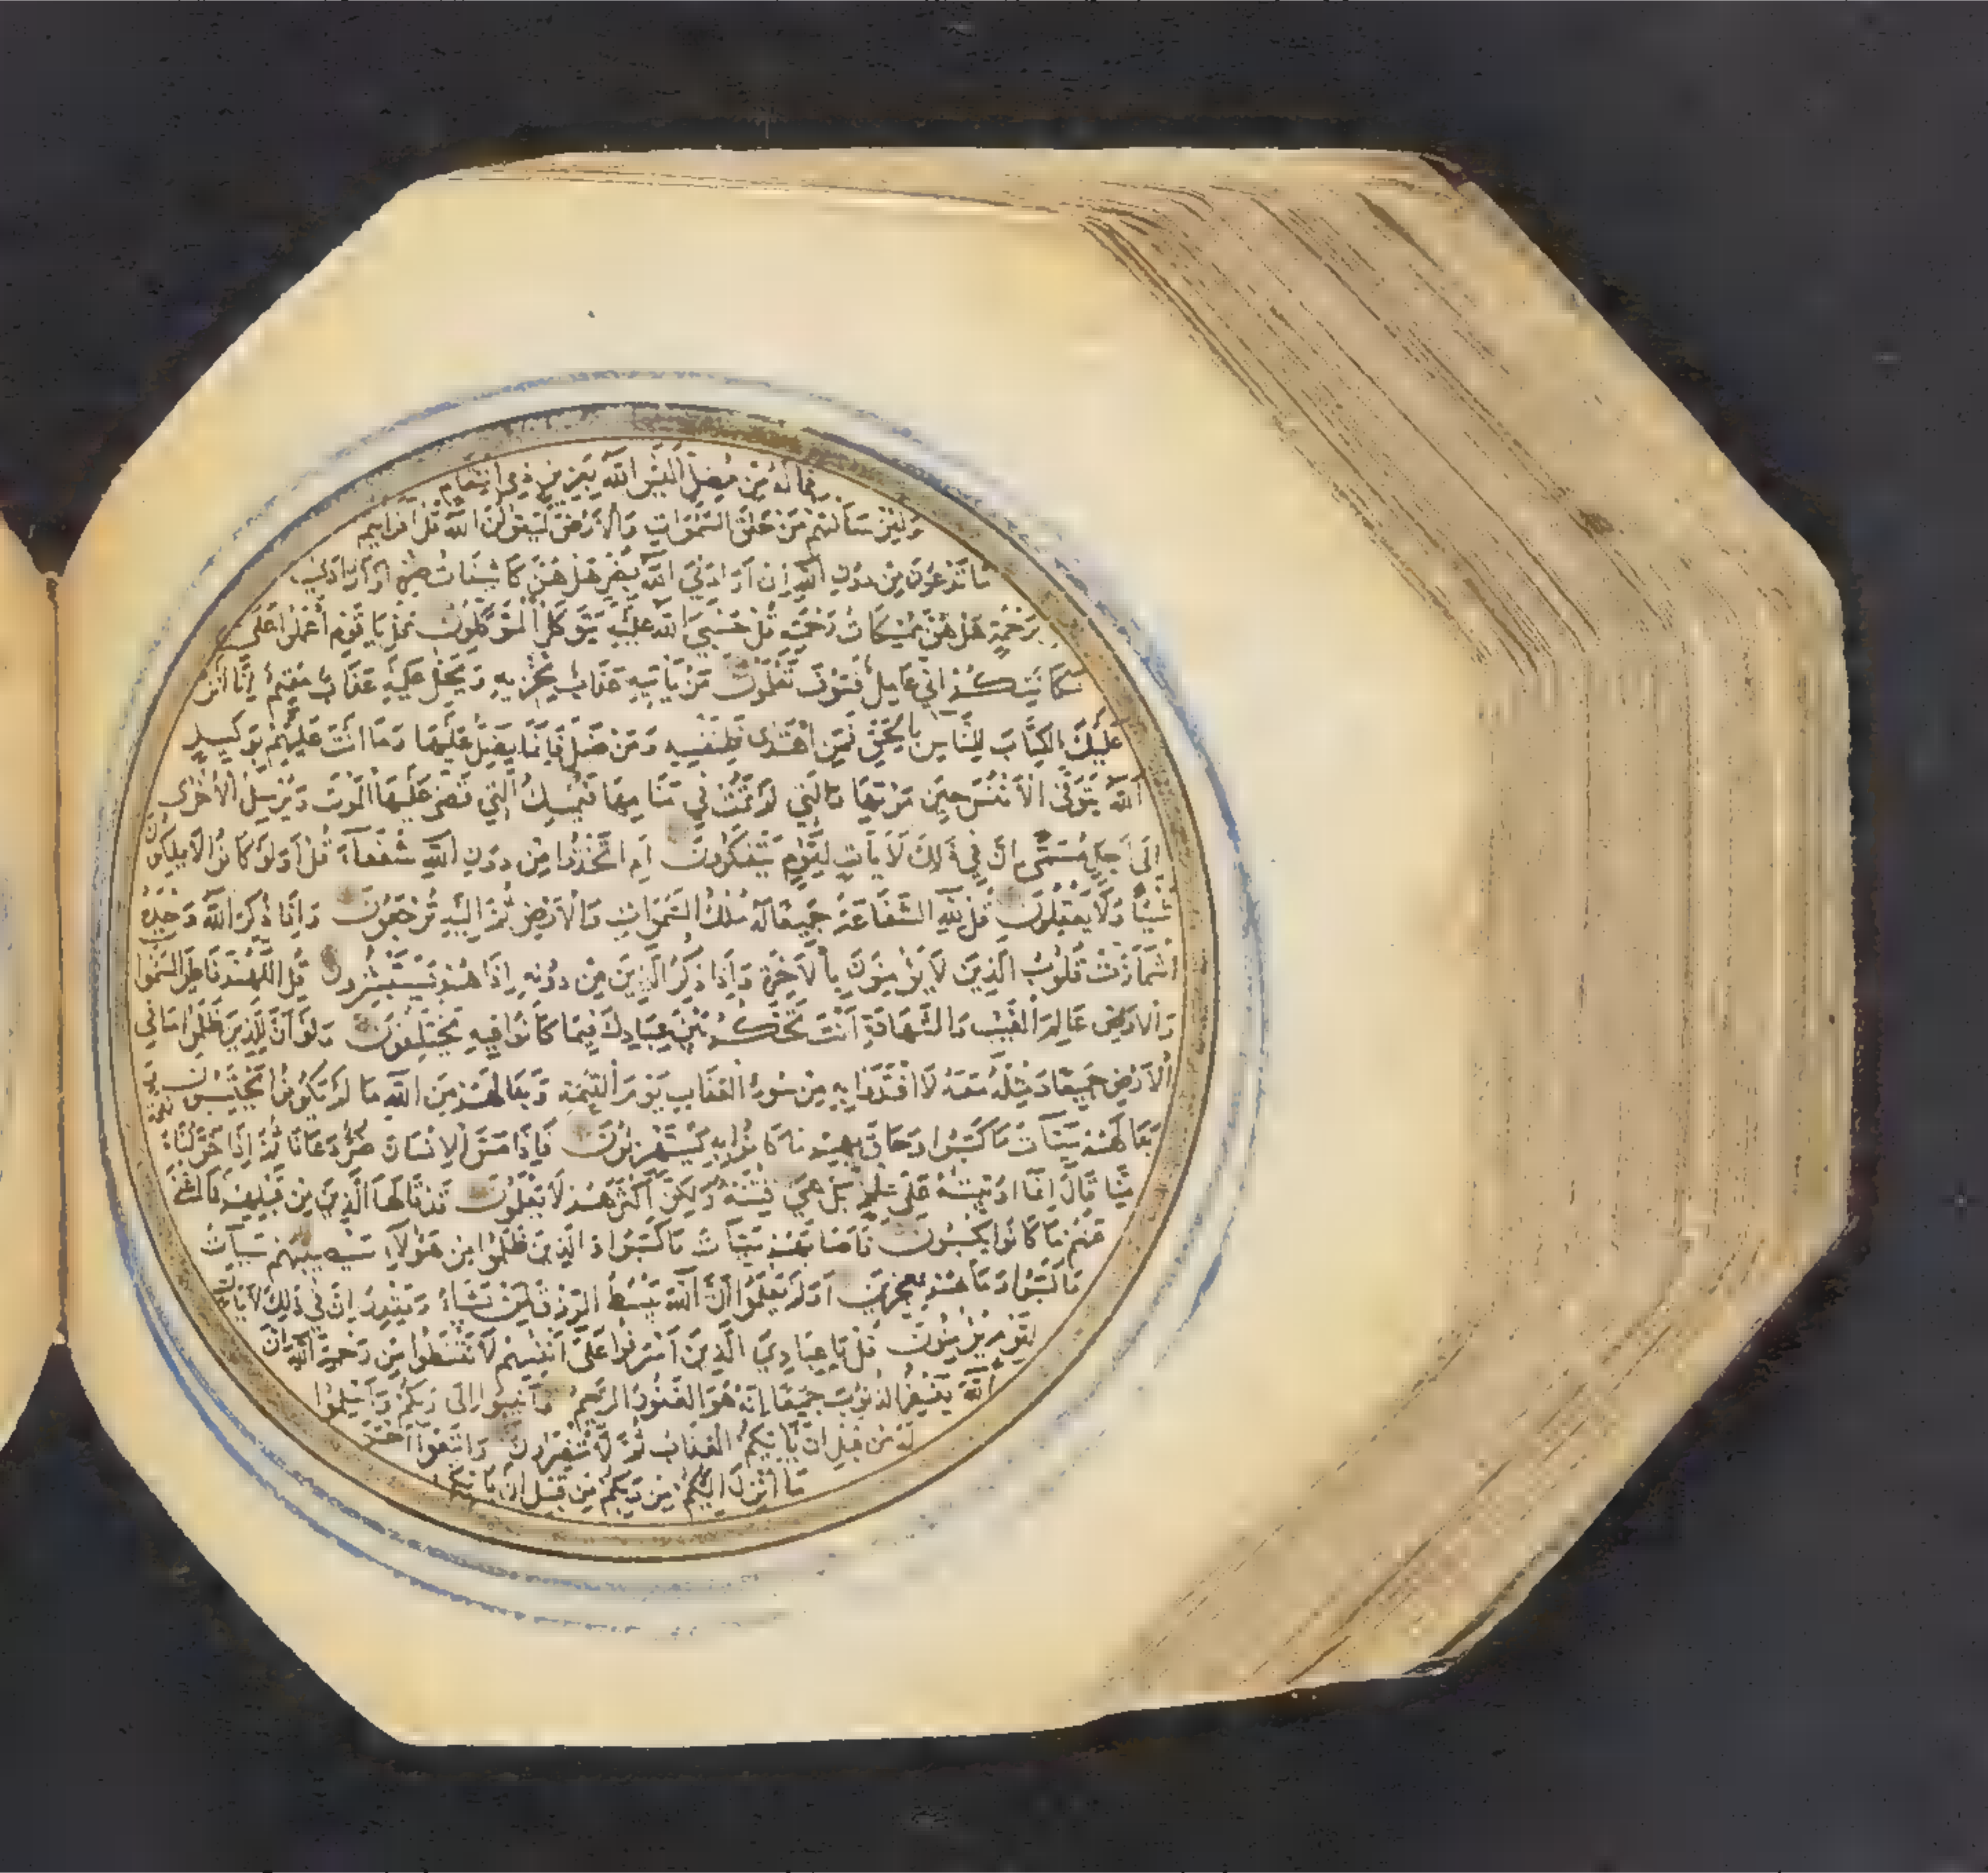 فماله من مضل أليس الله بعزيز ذي انتقام
ولئن سألتهم من خلق السموات والأرض ليقولن الله قل أفرأيتم
ما تدعون من دون الله إن أرادني الله بضر هل هن كاشفات ضره أو أرادني
برحمة هل هن ممسكات رحمته قل حسبي الله عليه يتوكل المتوكلون قل يا قوم اعملوا على
مكانتكم إني عامل فسوف تعلمون من يأتيه عذاب يخزيه ويحل عليه عذاب مقيم إنا أنزلنا
عليك الكتاب للناس بالحق فمن اهتدى فلنفسه ومن ضل فإنما يضل عليها وما أنت عليهم بوكيل
الله يتوفى الأنفس حين موتها والتي لم تمت في منامها فيمسك التي قضى عليها الموت ويرسل الأخرى
إلى أجل مسمى إن في ذلك لآيات لقوم يتفكرون أم اتخذوا من دون الله شفعاء قل أولو كانوا لا يملكون
شيئا ولا يعقلون قل لله الشفاعة جميعا له ملك السموات والأرض ثم إليه ترجعون وإذا ذكر الله وحده
اشمأزت قلوب الذين لا يؤمنون بالآخرة وإذا ذكر الذين من دونه إذا هم يستبشرون قل اللهم فاطر السموات
والأرض عالم الغيب والشهادة أنت تحكم بين عبادك فيما كانوا فيه يختلفون ولو أن للذين ظلموا ما في
الأرض جميعا ومثله معه لافتدوا به من سوء العذاب يوم القيمة وبدا لهم من الله ما لم يكونوا يحتسبون
وبدا لهم سيئات ما كسبوا وحاق بهم ما كانوا به يستهزئون فإذا مس الإنسان ضر دعانا ثم إذا خولناه نعمة
منا قال إنما أوتيته على علم بل هي فتنة ولكن أكثرهم لا يعلمون قد قالها الذين من قبلهم فما أغنى
عنهم ما كانوا يكسبون فأصابهم سيئات ما كسبوا والذين ظلموا من هؤلاء سيصيبهم سيئات
ما كسبوا وما هم بمعجزين أولم يعلموا أن الله يبسط الرزق لمن يشاء ويقدر إن في ذلك لآيات
لقوم يؤمنون قل يا عبادي الذين أسرفوا على أنفسهم لا تقنطوا من رحمة الله إن
الله يغفر الذنوب جميعا إنه هو الغفور الرحيم وأنيبوا إلى ربكم وأسلموا
له من قبل أن يأتيكم العذاب ثم لا تنصرون واتبعوا أحسن
ما أنزل إليكم من ربكم من قبل أن يأتيكم